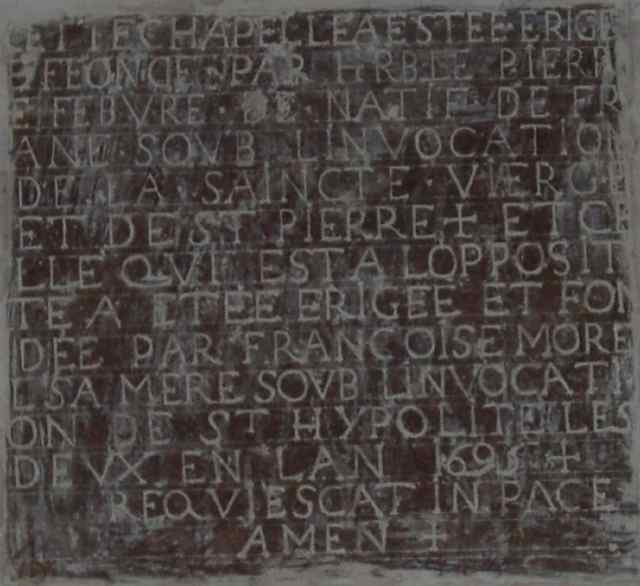 CETTE CHAPELLE A ESTEE ERIGE
E FEONDEE PAR HRBLE PIERR
E FEBVRE NATIF DE FR
ANE SOVB LINVOCATION
DE LA SAINCTE VIERGE
ET DE ST PIERRE + ET CE
LLE QVI EST A LOPPOSIT
TE A ETEE ERIGEE ET FON
DEE PAR FRANCOISE MORE
L SA MERE SOVB LINVOCATI
ON DE ST HYPOLITE LES
DEVX EN LAN 1695 +
REQVIESCAT IN PACE
AMEN +